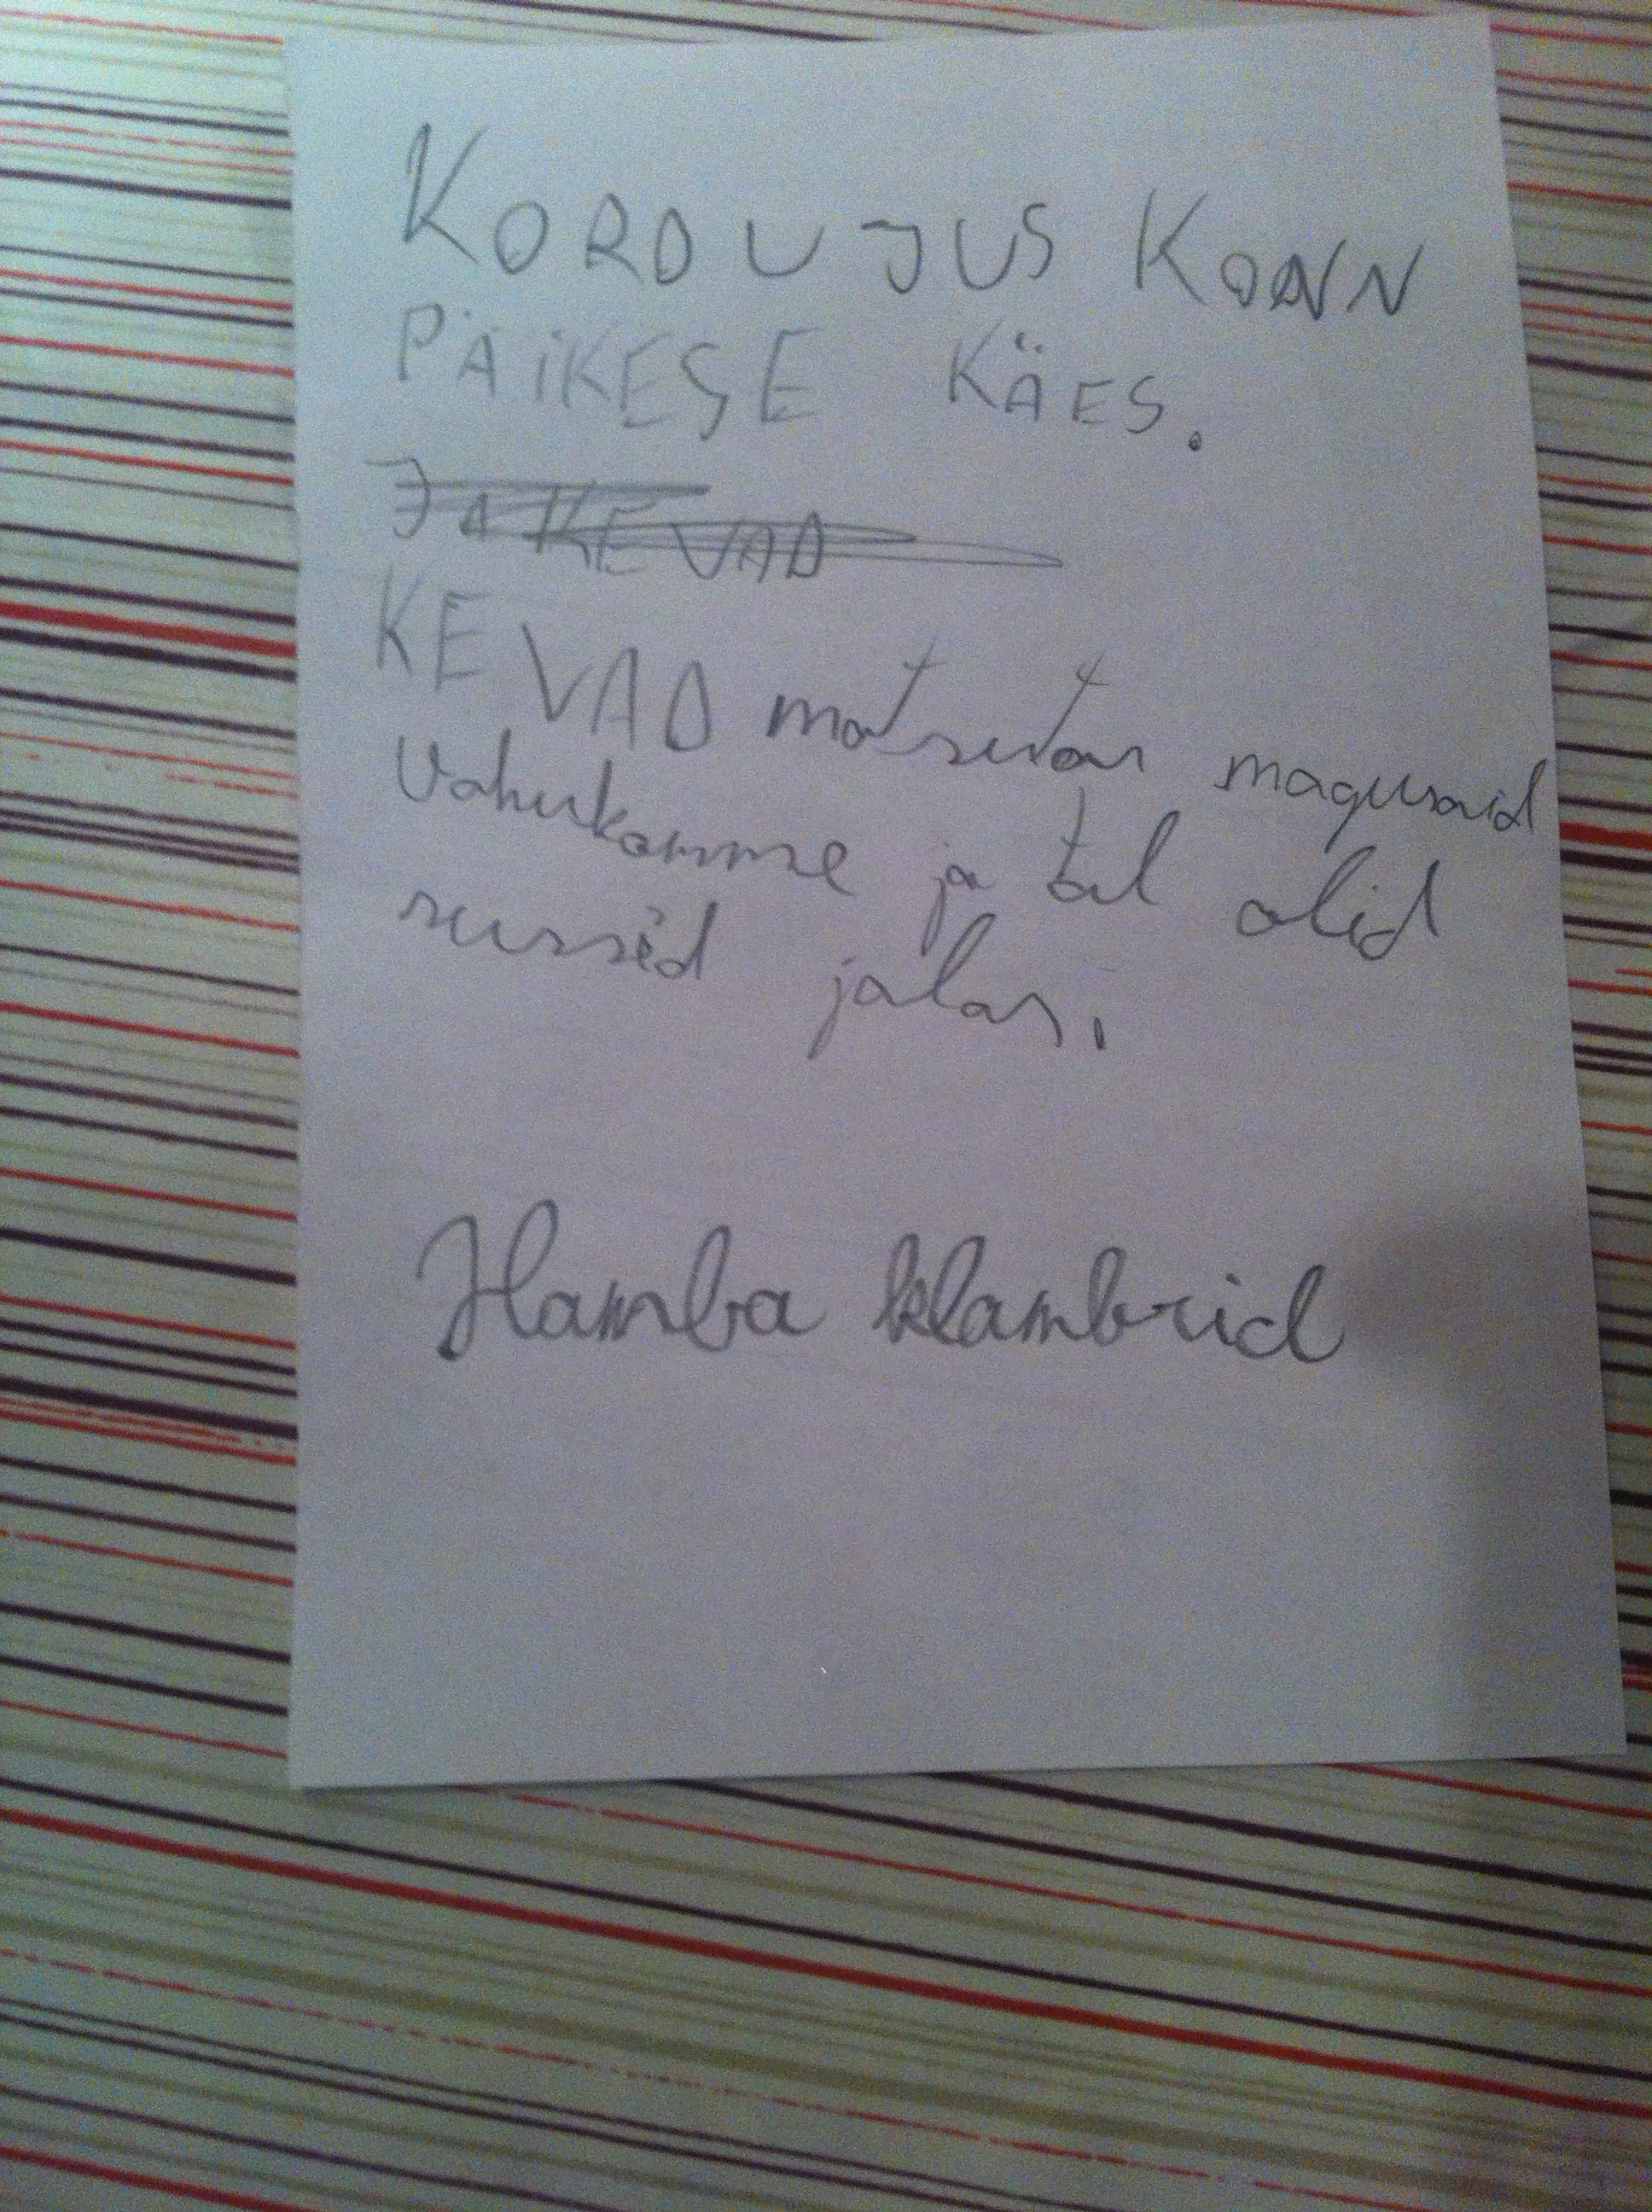 KORDUJUS KONN
PÄIKESE KÄES.
JA KEVAD
KEVAD matsutas magusaid
Vahukomme ja tal olid
sussed jalas.
Hamba klambrid